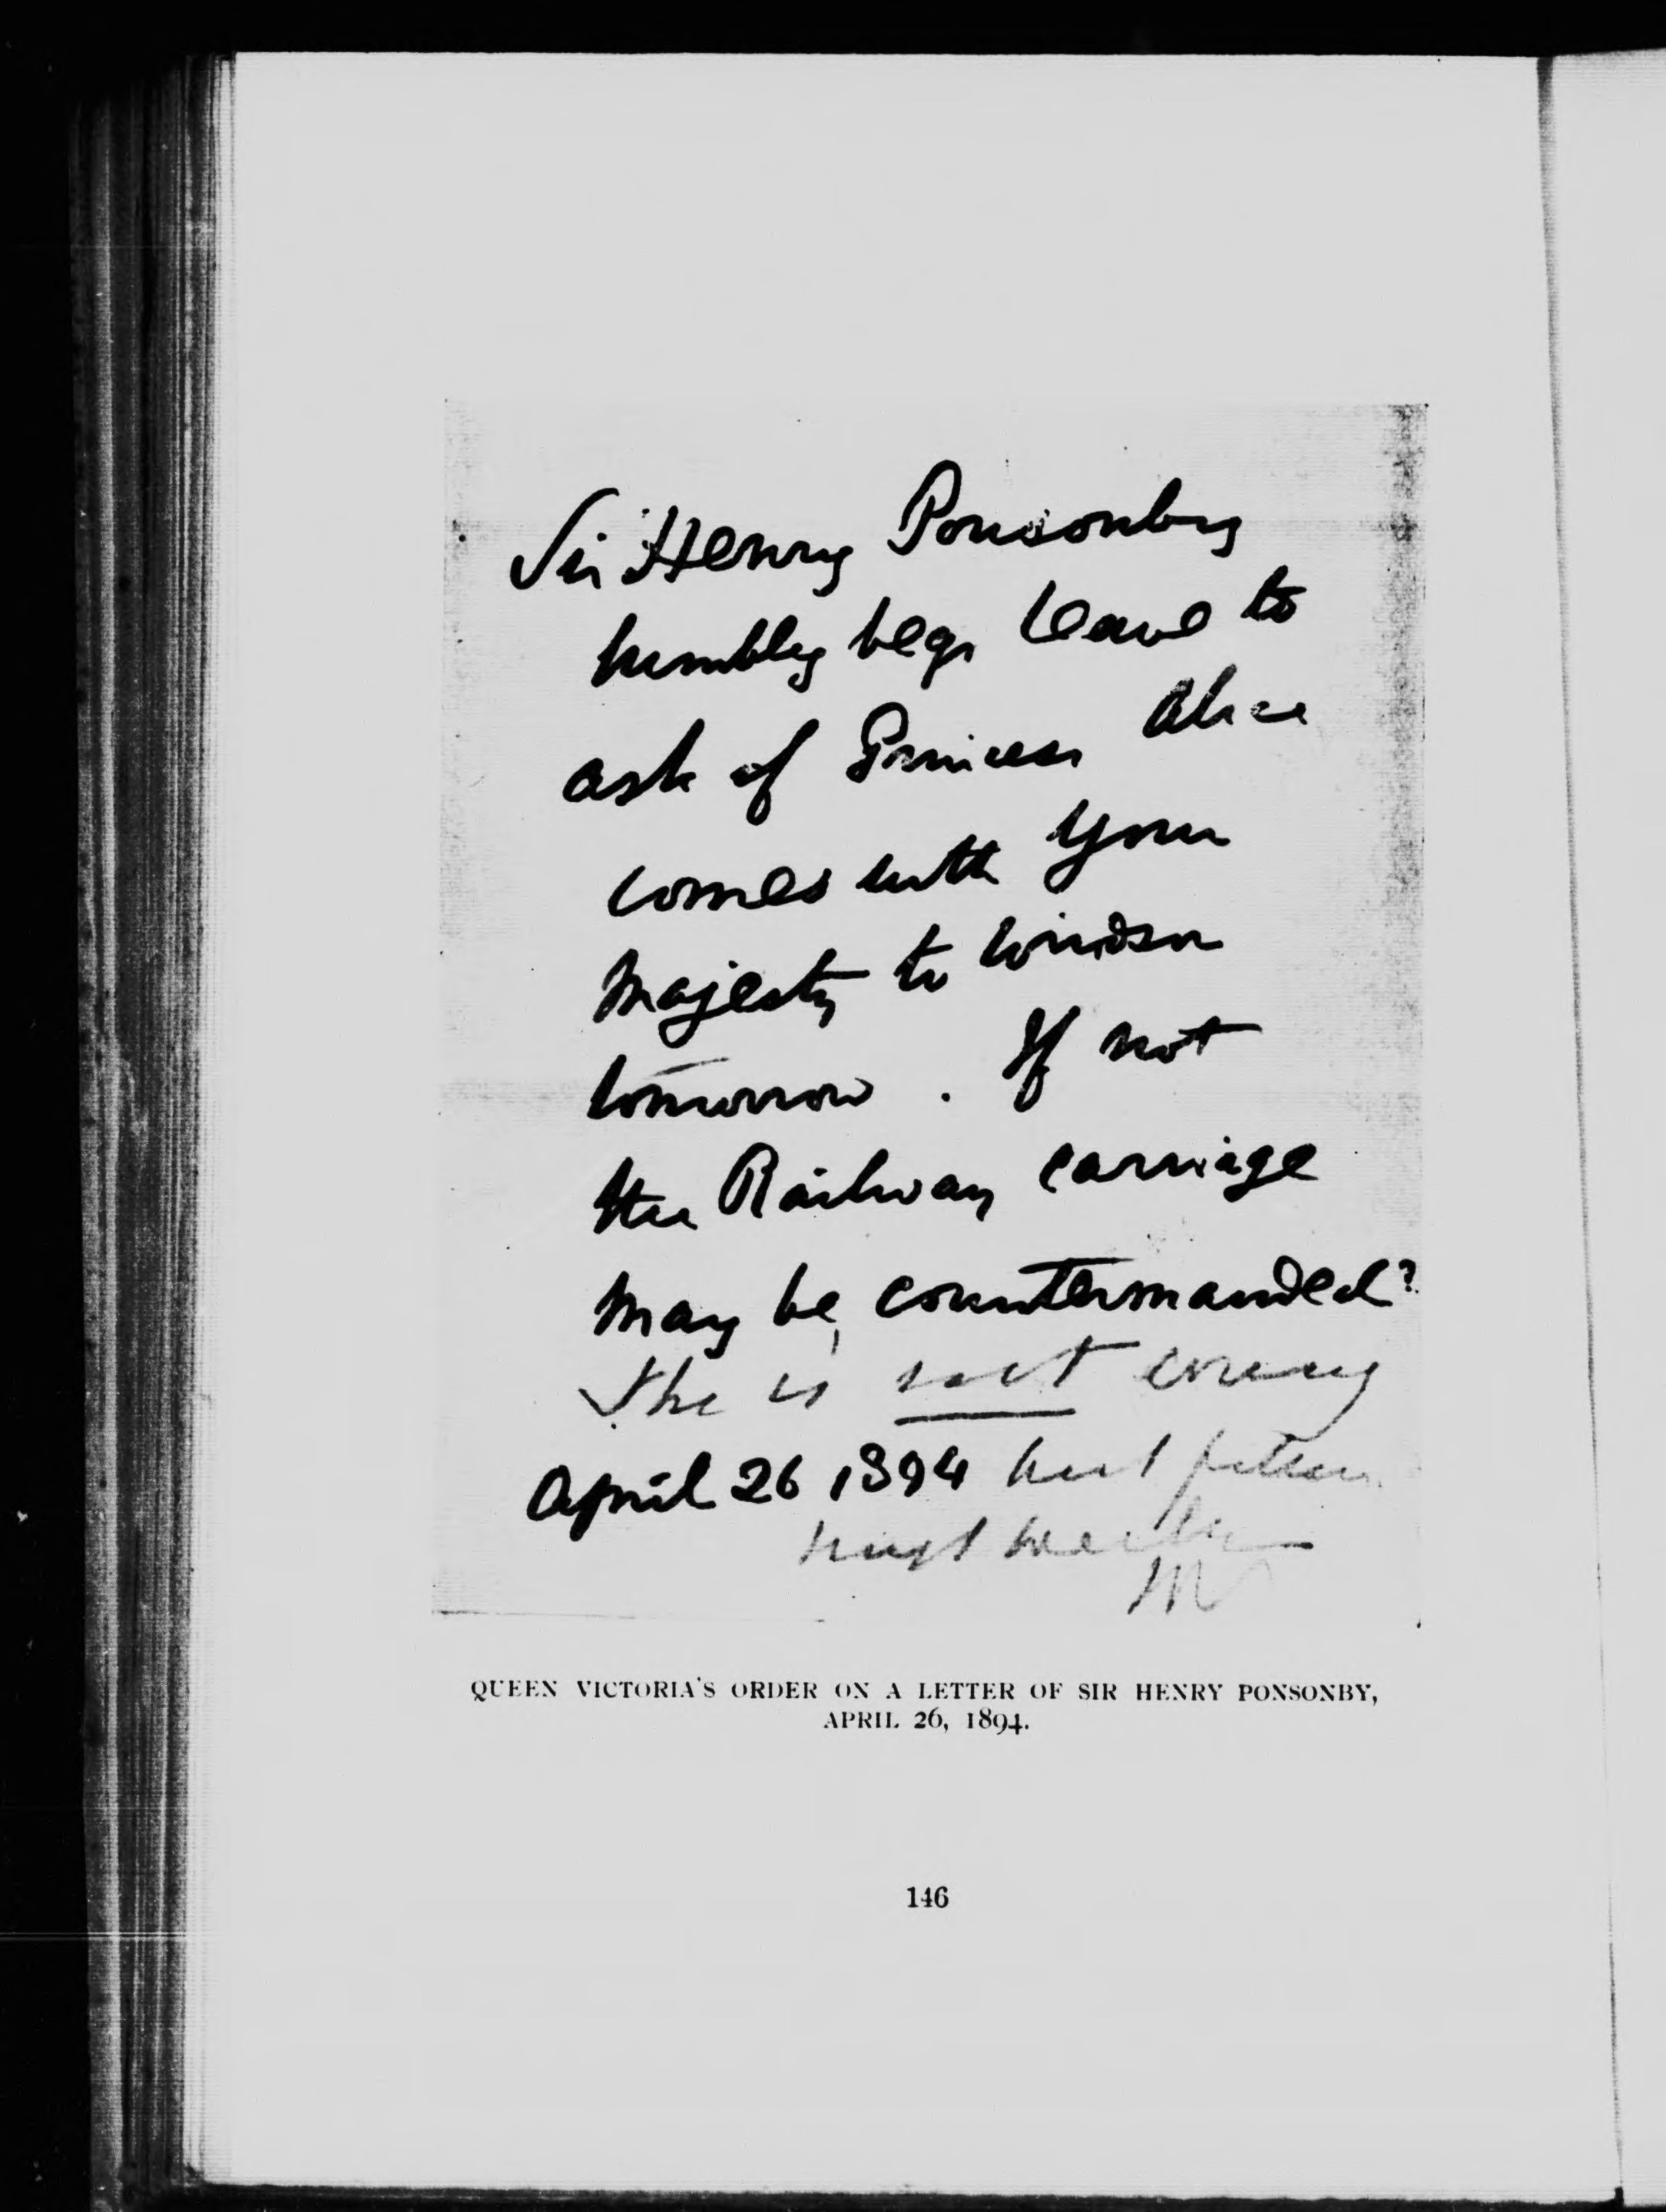 Sir Henry Ponsonby
humbly begs leave to
ask if Princess Alice
comes with Your
Majesty to Windsor
tomorrow. If not
the Railway carriage
may be countermanded?
She is not coming
April 26 1894 but
might
QUEEN VICTORIA'S ORDER ON A LETTER OF SIR HENRY PONSONBY,
APRIL 26, 1894.
146